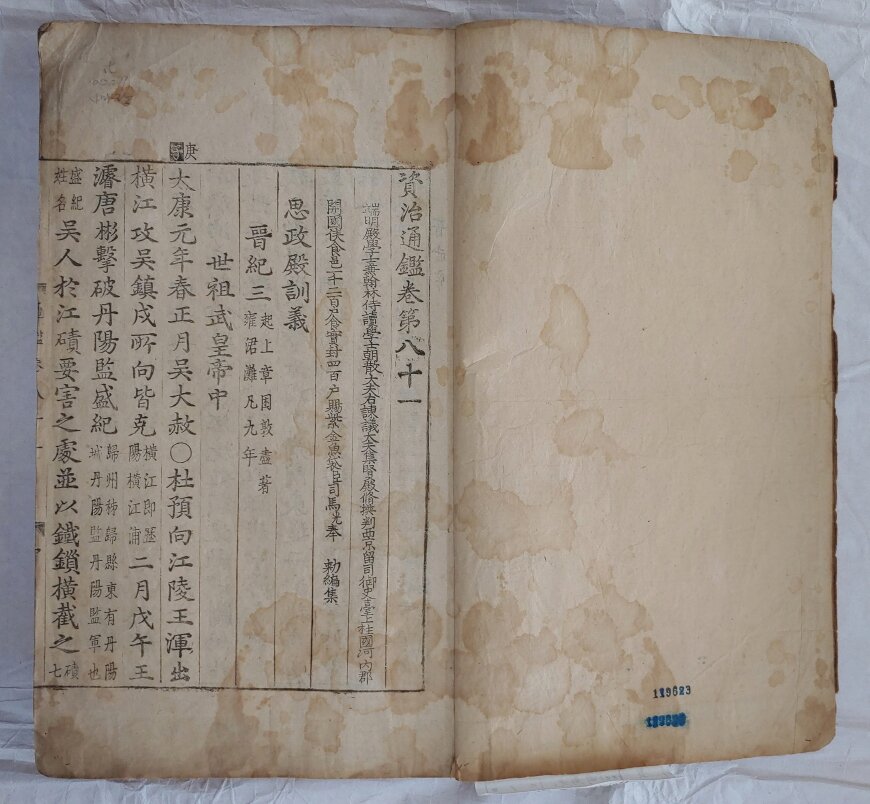 資治通鑑卷第八十一
端明殿學士兼翰林侍讀學士朝散大夫右諫議大夫集賢殿修撰判西京留司御史臺上柱國河內郡
開國侯食邑一千二百戶食實封四百戶賜紫金魚袋臣司馬光奉 勑編集
思政殿訓義
晉紀三 起上章困敦盡著雍涒灘凡九年
世祖武皇帝中
庚子
太康元年春正月吳大赦〇杜預向江陵王渾出
橫江攻吳鎮戍所向皆克 橫江即歷陽橫江浦 二月戊午王
濬唐彬擊破丹陽監盛紀 歸州秭歸縣東有丹陽城丹陽監丹陽監軍也
盛紀姓名 吳人於江磧要害之處並以鐵鎖橫截之 磧七
通鑑卷八十一
119623